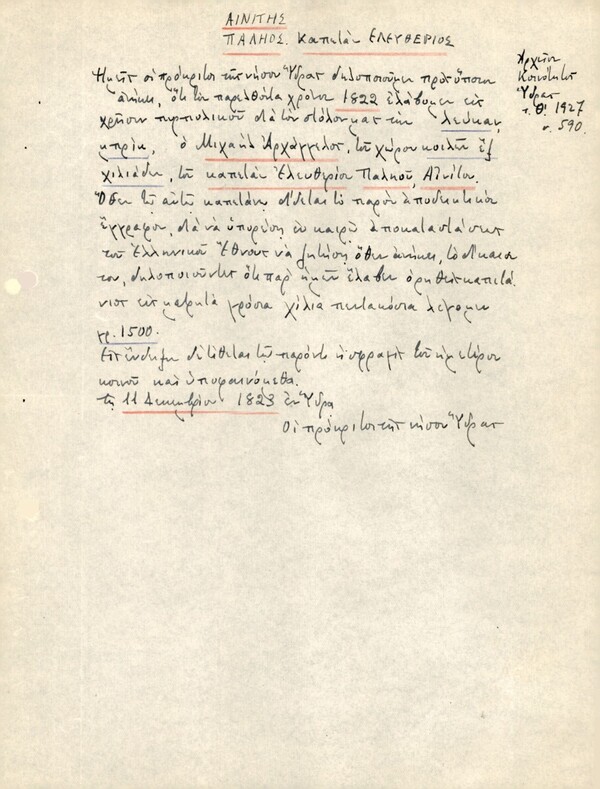 ΑΙΝΙΤΗΣ
ΠΑΛΗΟΣ. Καπετὰν ΕΛΕΥΘΕΡΙΟΣ
Ἀρχεῖον
Κοινότητος
Ὕδρας
τ. Θ! 1927
σ. 590.
Ἡμεῖς οἱ πρόκριτοι τῆς νήσου Ὕδρας δηλοποιοῦμεν πρὸς ὅποιον
ἀνήκει, ὅτι τὸν παρελθόντα χρόνον 1822 ἐλάβομεν εἰς
χρῆσιν πυρπολικοῦ διὰ τὸν στόλον μας τὴν
μπρίκ, ὁ Μιχαὴλ Ἀρχάγγελος, τοῦ χώρου κοιλῶν ἕξ
χιλιάδων, τοῦ καπετὰν Ἐλευθερίου Παληοῦ, Αἰνίτου.
Ὅθεν τῷ αὐτῷ καπετάνῳ δίδεται τὸ παρὸν ἀποδεικτικὸν
ἔγγραφον, διὰ νὰ ἠμπορέσῃ ἐν καιρῷ ἀποκαταστάσεως
τοῦ Ἑλληνικοῦ Ἔθνους νὰ ζητήσῃ ὅθεν ἀνήκει, τὸ δίκαιόν
του, δηλοποιοῦντες ὅτι παρ' ἡμῶν ἔλαβεν ὁ ῥηθεὶς καπετά
νιος εἰς μετρητὰ γρόσια χίλια πεντακόσια λέγομεν
γρ. 1500.
Εἰς ἔνδειξιν διατίθεται τῷ παρόντι ἡ σφραγὶς τοῦ ἡμετέρου
κοινοῦ καὶ ὑποφαινόμεθα.
τῇ 11 Δεκεμβρίου 1823 ἐν Ὕδρᾳ
Οἱ πρόκριτοι τῆς νήσου Ὕδρας